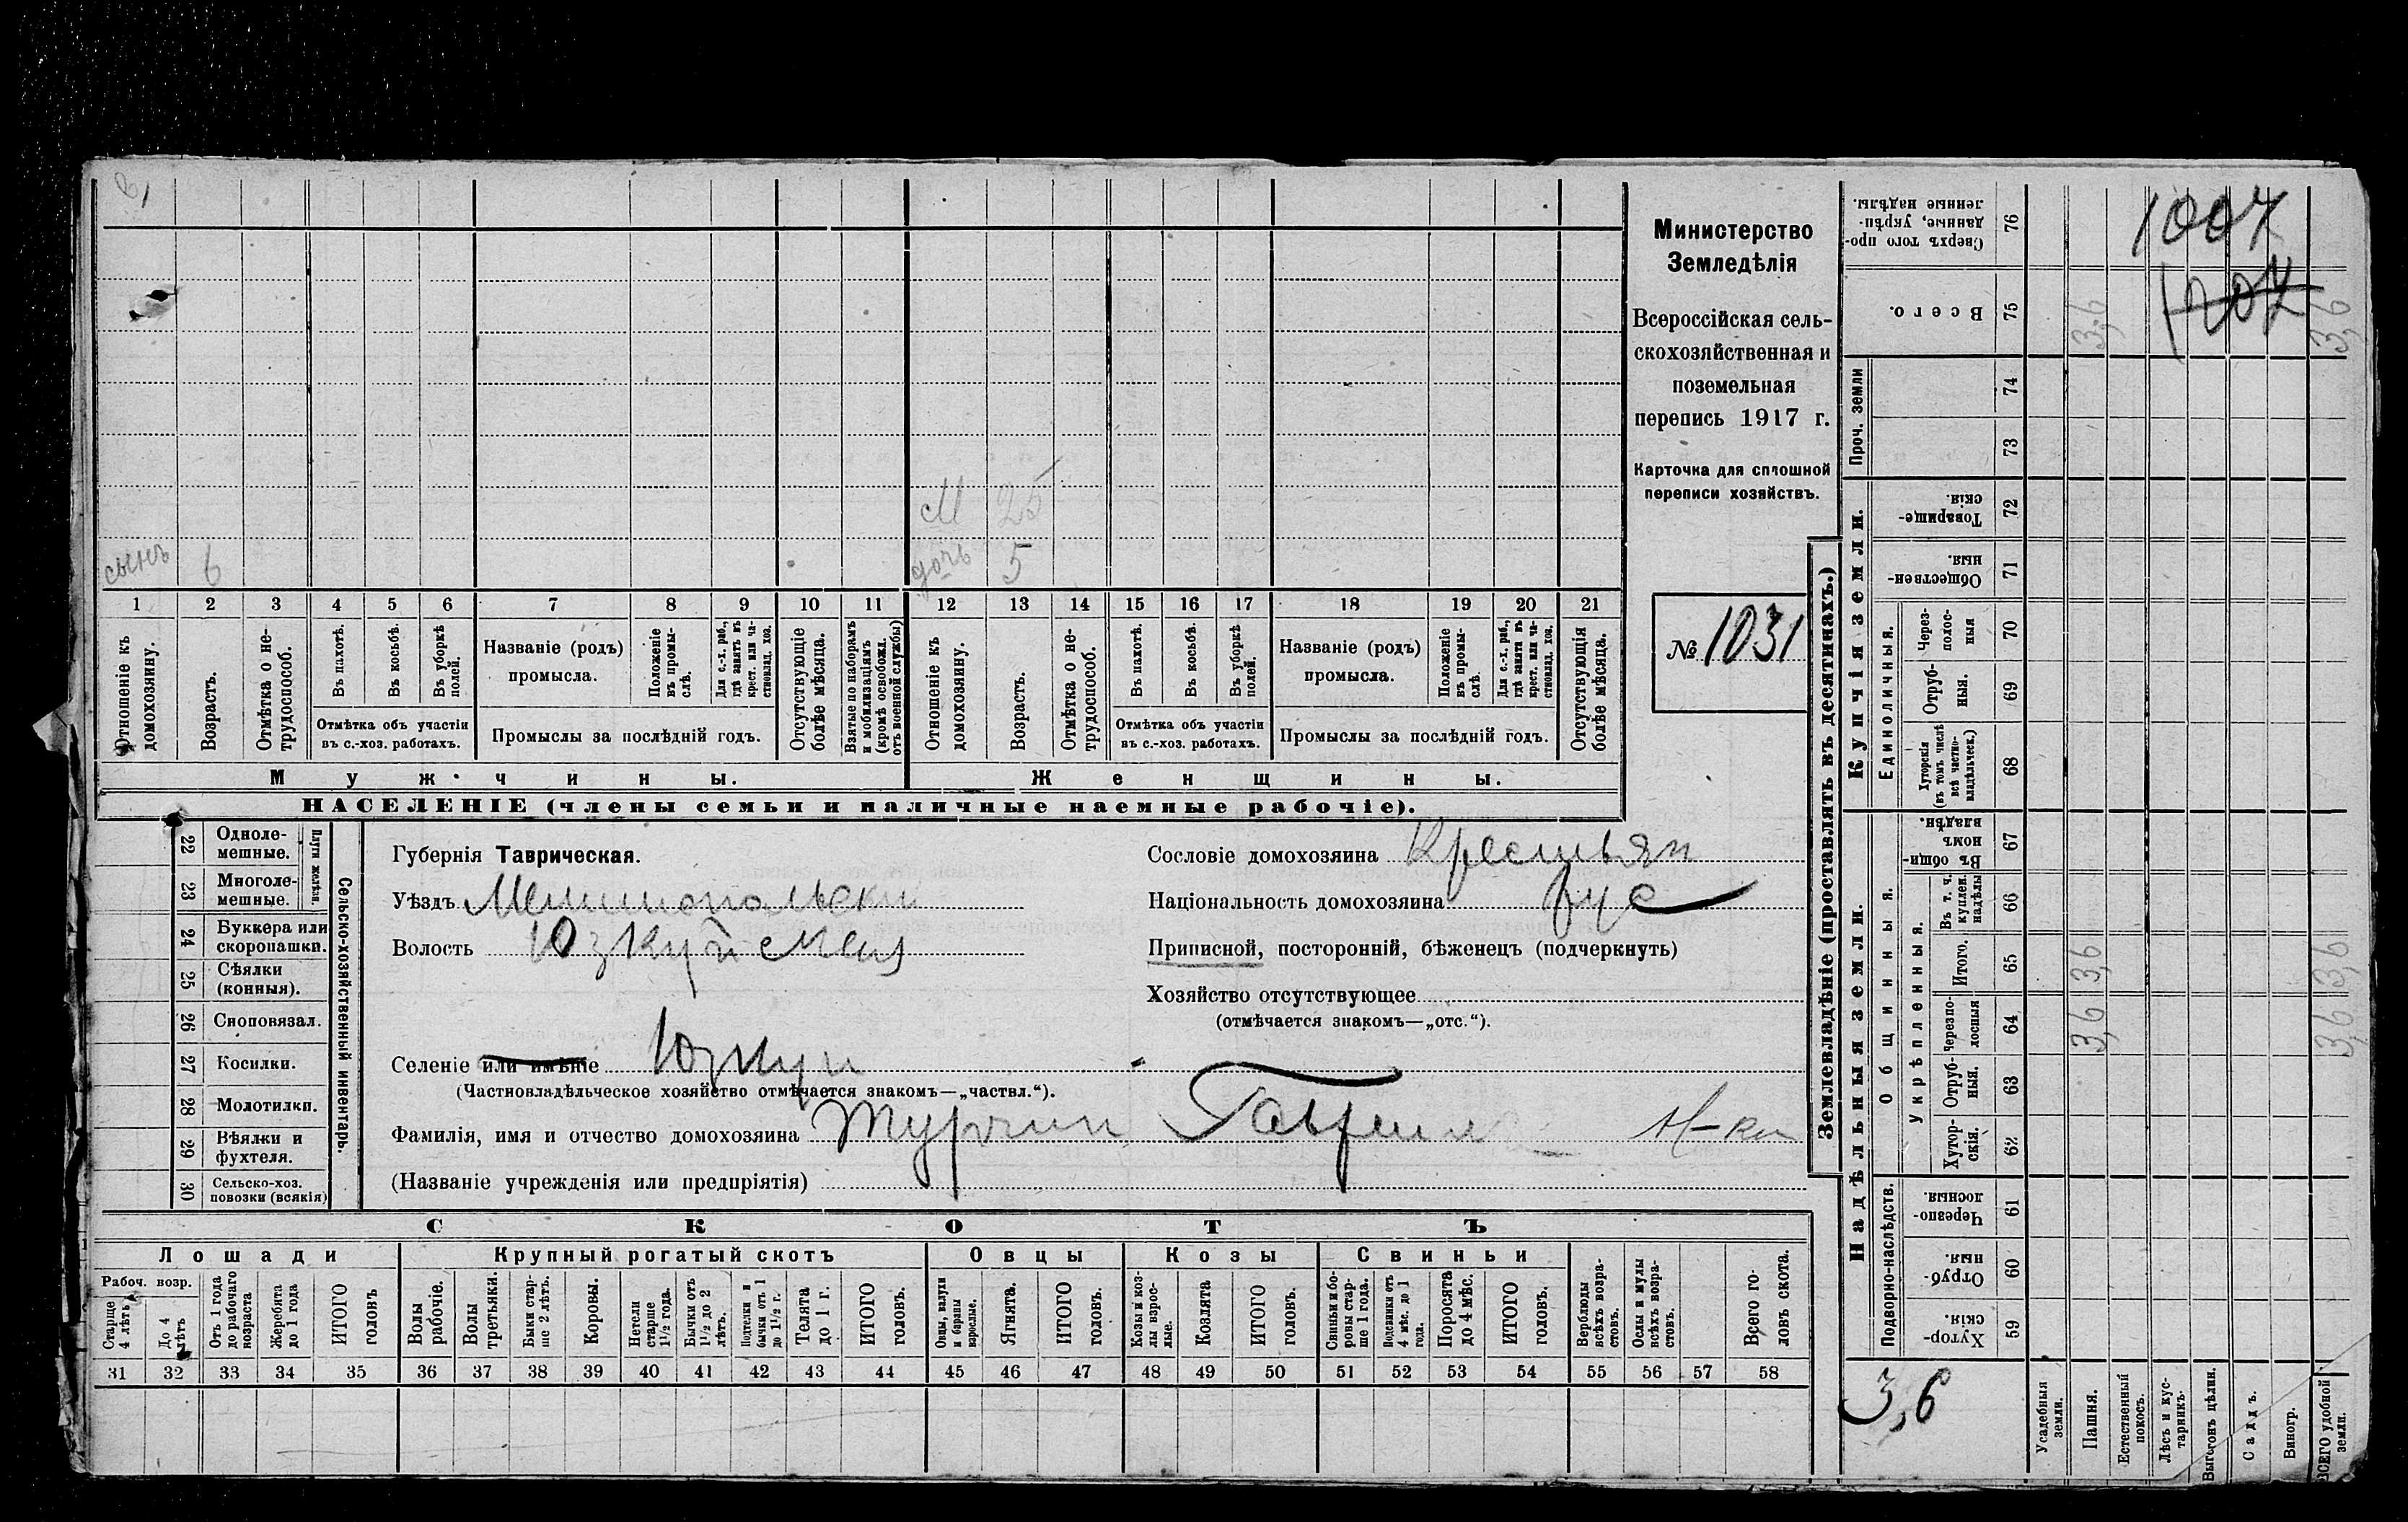 1007
1207
Министерство
Земледѣлія
Всероссійская сель-
скохозяйственная и
поземельная
перепись 1917 г.
Карточка для сплошной
переписи хозяйствъ.
№ 1031
М 25
сынъ 6 дочь 5
1 2 3 4 5 6 7 8 9 10 11 12 13 14 15 16 17 18 19 20 21
Отношеніе къ домохозяину.
Возрастъ.
Отмѣтка о не-трудоспособ.
Въ пахотѣ.
Въ косьбѣ.
Въ уборкѣ полей.
Отмѣтка объ участіи въ с.-хоз. работахъ.
Названіе (родъ) промысла.
Положеніе въ промы-слѣ.
Для с.-х. раб., гдѣ занятъ въ крест. или ча-стновлад. хоз.
Промыслы за послѣдній годъ.
Отсутствующіе болѣе мѣсяца.
Взятые по наборамъ и мобилизаціямъ (кромѣ освобожд. отъ военной службы)
Отношеніе къ домохозяину.
Возрастъ.
Отмѣтка о не-трудоспособ.
Въ пахотѣ.
Въ косьбѣ.
Въ уборкѣ полей.
Отмѣтка объ участіи въ с.-хоз. работахъ.
Названіе (родъ) промысла.
Положеніе въ промы-слѣ.
Для с.-х. раб., гдѣ занята въ крест. или ча-стновлад. хоз.
Промыслы за послѣдній годъ.
Отсутствующія болѣе мѣсяца.
Мужчины. Женщины.
НАСЕЛЕНІЕ (члены семьи и наличные наемные рабочіе).
22 Одноле-мешные.
23 Многоле-мешные.
Плуги желѣзн.
24 Буккера или скоропашки.
25 Сѣялки (конныя).
26 Сноповязал.
27 Косилки.
28 Молотилки.
29 Вѣялки и фухтеля.
30 Сельско-хоз. повозки (всякія)
Сельско-хозяйственный инвентарь.
Губернія Таврическая.
Уѣздъ Мелитопольскій
Волость Юзкуйская
Селеніе или имѣніе Юзкуи
(Частновладѣльческое хозяйство отмѣчается знакомъ—„частвл.“).
Фамилія, имя и отчество домохозяина Турчин Гавриил
(Названіе учрежденія или предпріятія)
Сословіе домохозяина Крестьян
Національность домохозяина рус
Приписной, посторонній, бѣженецъ (подчеркнуть)
Хозяйство отсутствующее
(отмѣчается знакомъ—„отс.“).
СКОТЪ
Лошади Крупный рогатый скотъ Овцы Козы Свиньи
Рабоч. возр.
Старше 4 лѣтъ
До 4 лѣтъ
Отъ 1 года до рабочаго возраста
Жеребята до 1 года
ИТОГО головъ
Волы рабочіе.
Волы третьяки.
Быки стар-ше 2 лѣтъ.
Коровы.
Нетели старше 1½ года.
Бычки отъ 1½ до 2 лѣтъ.
Подтелки и бычки отъ 1 до 1½ г.
Телята до 1 г.
ИТОГО головъ.
Овцы, валухи и бараны взрослые.
Ягнята.
ИТОГО головъ.
Козы и коз-лы взрос-лые.
Козлята
ИТОГО головъ.
Свиньи и бо-ровы стар-ше 1 года.
Подсвинки отъ 4 мѣс. до 1 года.
Поросята до 4 мѣс.
ИТОГО головъ.
Верблюды всѣхъ возра-стовъ.
Ослы и мулы всѣхъ возра-стовъ.
Всего го-ловъ скота.
31 32 33 34 35 36 37 38 39 40 41 42 43 44 45 46 47 48 49 50 51 52 53 54 55 56 57 58
Землевладѣніе (проставлять въ десятинахъ.)
Сверхъ того про-данные, укрѣп-ленные надѣлы. 76
Всего. 75 3,6 3,6
Проч. земли 74
73
Купчія земли.
Товарище-скія. 72
Обществен-ныя. 71
Единоличныя.
Через-полос-ныя 70
Отруб-ныя. 69
Хуторскія (въ томъ числѣ всѣ частно-владѣльческ.) 68
Надѣльныя земли.
Общинныя.
Въ общин-номъ владѣн. 67
Укрѣпленныя.
Въ т. ч. куплен. надѣлы 66
Итого. 65 3,6 3,6
Черезпо-лосныя 64 3,6 3,6
Отруб-ныя. 63
Хутор-скія. 62
Подворно-наслѣдств.
Черезпо-лосныя. 61
Отруб-ныя. 60
Хутор-скія. 59
3,6
Усадебныя земли.
Пашня.
Естественный покосъ.
Лѣсъ и кус-тарникъ.
Выгонъ цѣлин.
Садъ.
Виногр.
ВСЕГО удобной земли.